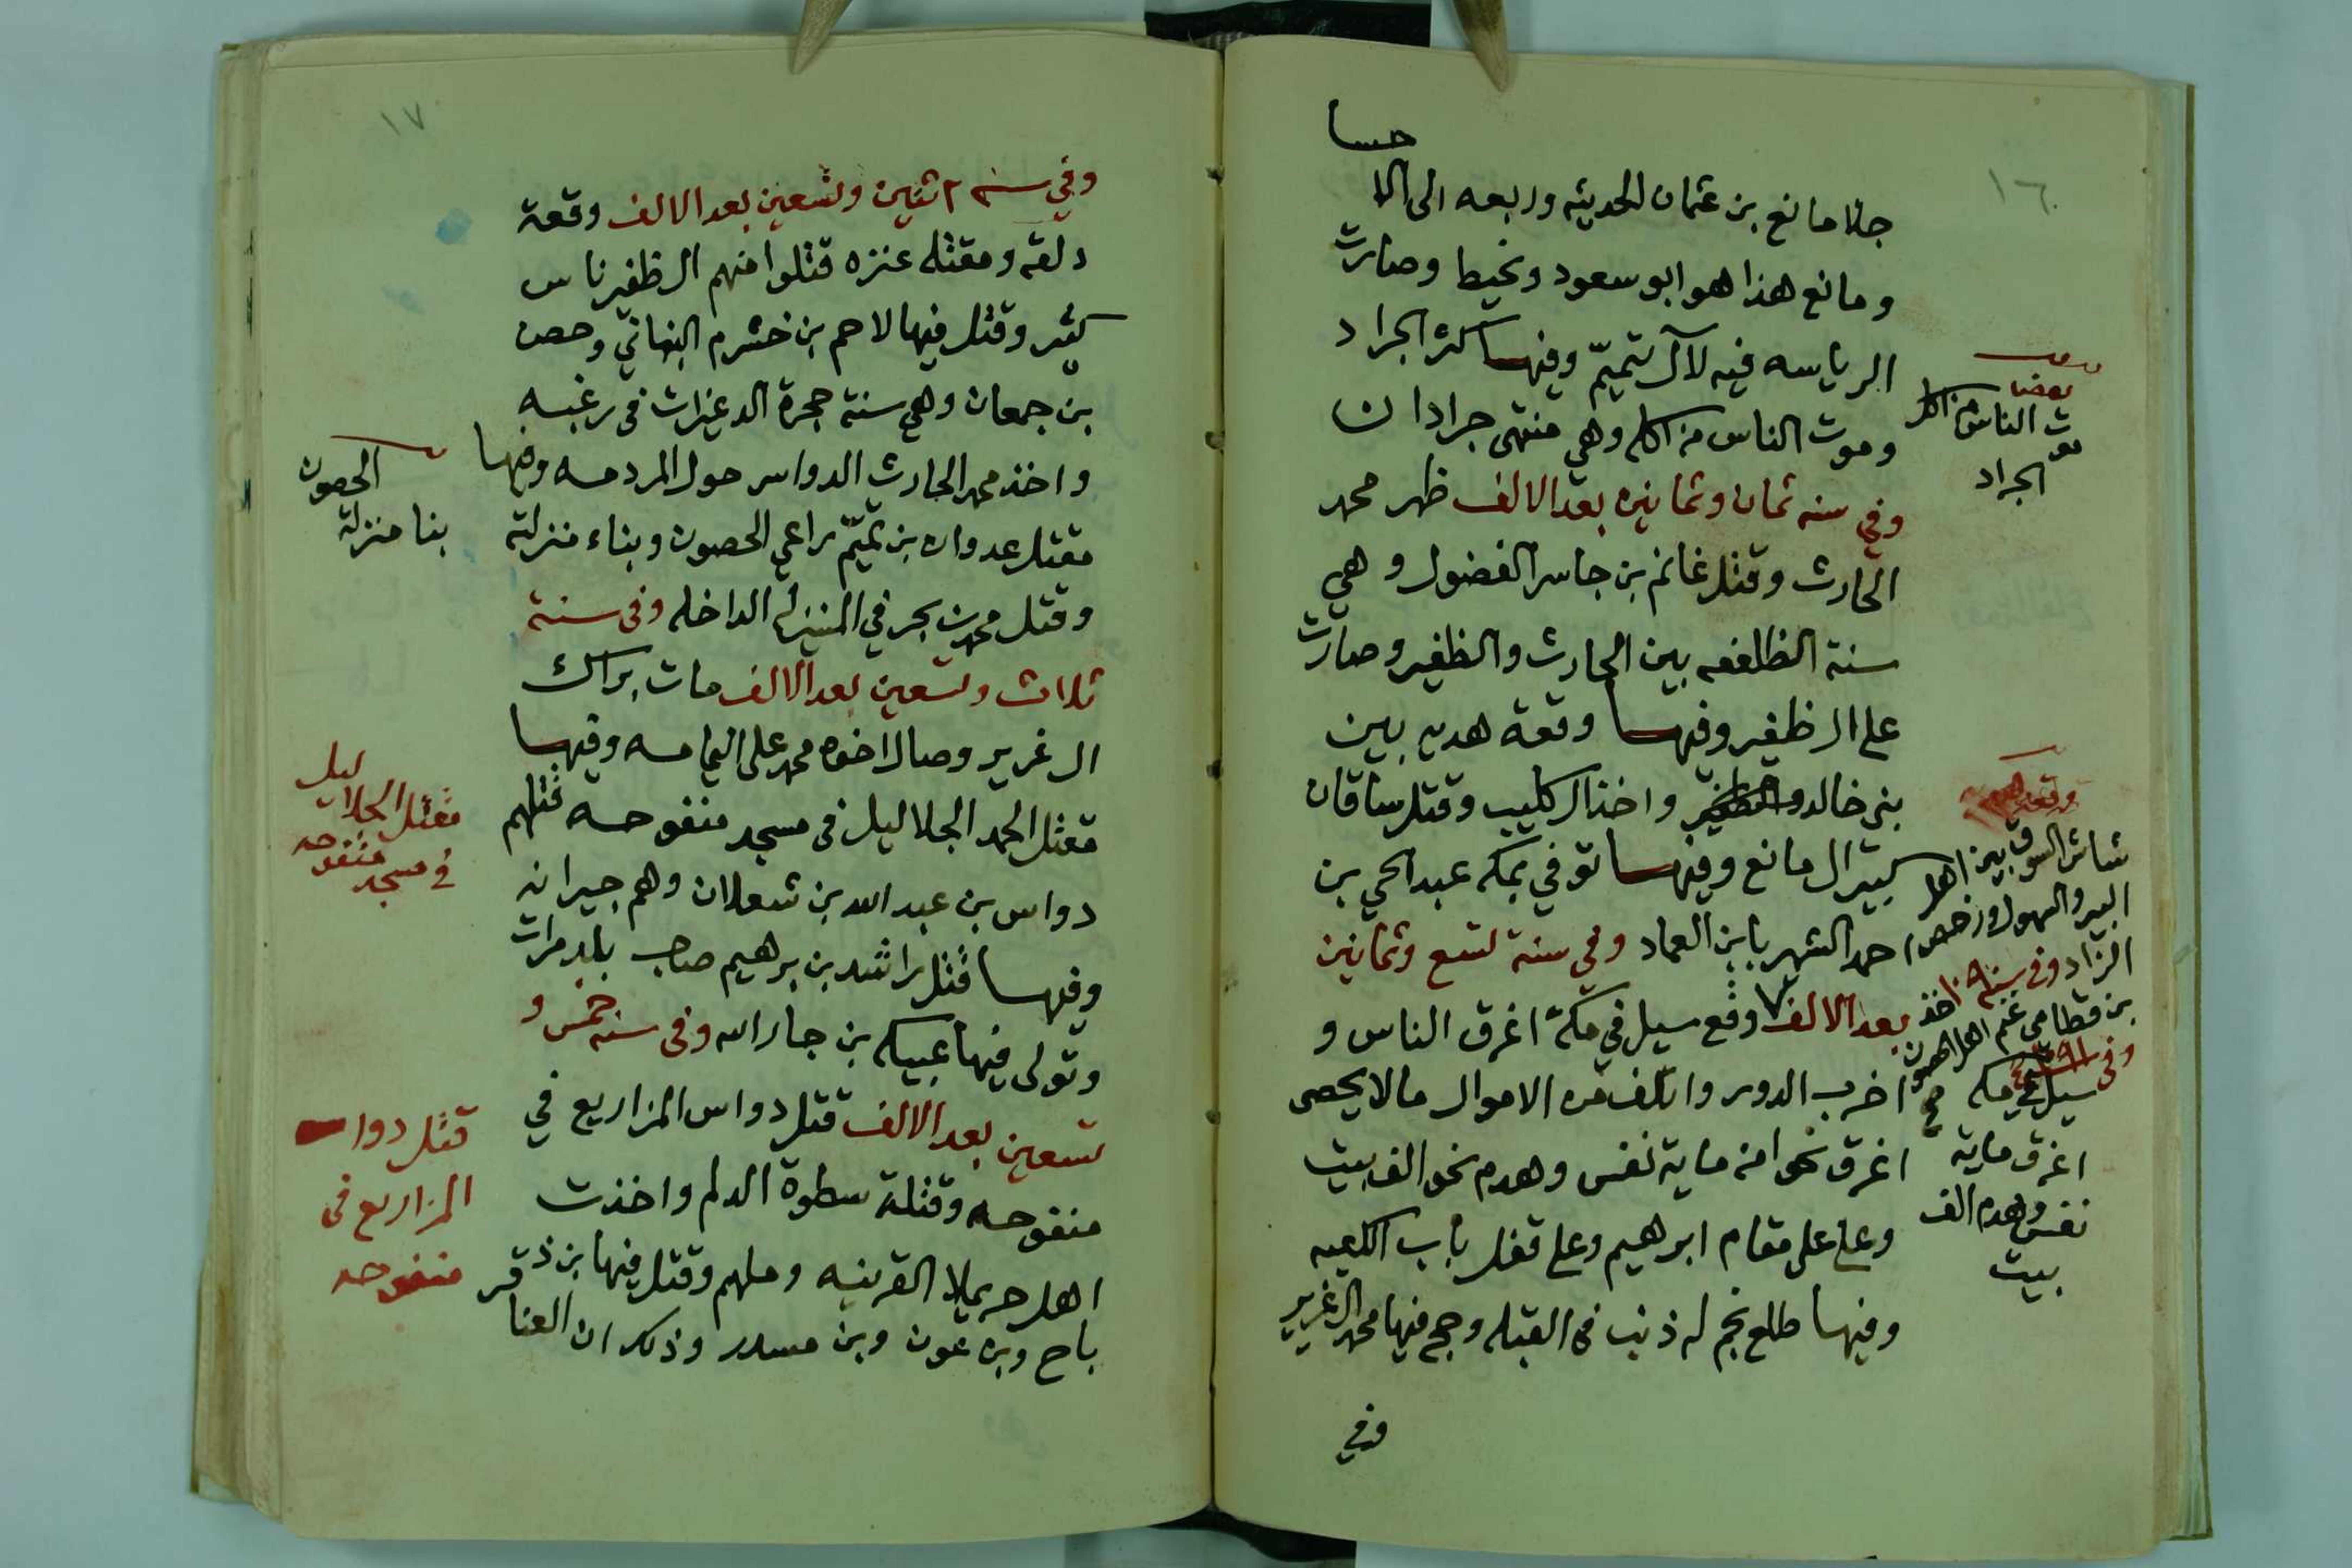 ١٦
حسا
جلا مانع بن عثمان الحديثه وربعه الى الا
ومانع هذا هو ابو سعود ونحيط وصارت
الرياسه فيه لآل تميّم وفيها كثر الجراد
وموت الناس من اكله وهي منتهى جرادان
وفي سنه ثمان وثمانين بعد الالف ظهر محمد
الحارث وقتل غانم بن جاسر الفضول وهي
سنة الظلفعه بين الحارث والظفير وصارت
على الظفير وفيها وقعة هديه بين
بني خالد والظفير واخذ ال كليب وقتل ساقان
كبير ال مانع وفيها توفي بمكه عبد الحي بن
احمد الشهير بابن العماد وفي سنة تسع وثمانين
بعد الالف وقع سيل في مكة اغرق الناس و
اخرب الدور واتلف من الاموال مالا يحصى
اغرق نحوا من ماية نفس وهدم نحو الف بيت
وعلى على مقام ابرهيم وعلى قفل باب الكعبه
وفيها طلع نجم له ذنب في القبله وحج فيها محمد ال غرير
وفي
موت الناس من اكل
الجراد
شاش السوق بين اهل
البير والسهول ورخص
الزاد وفي سنة ١٠٩٠ اخذ
بن قطامي غنم اهل الحصون
وفي ١٠٩١
سيل في مكه
اغرق ماية
نفس وهدم الف
بيت
١٧
وفي سنه اثنين وتسعين بعد الالف وقعة
دلقه ومقتله عنزه قتلوا منهم الظفير ناس
كثير وقتل فيها لاحم بن خشرم النبهاني وحصن
بن جمعان وهي سنة حجرة الدغيرات في رغبه
واخذ محمد الحارث الدواسر حول المردمه وفيها
مقتل عدوان بن تميّم راعي الحصون وبناء منزلة
وقتل محمد بن بحر في المنيزله الداخله وفي سنة
ثلاث وتسعين بعد الالف مات براك
ال غرير وصال اخوه محمد على اليمامه وفيها
مقتل الحمد الجلاليل في مسجد منفوحه قتلهم
دواس بن عبد الله بن شعلان وهم جيرانه
وفيها قتل راشد بن برهيم صاحب بلد مرات
وتولى فيها عبيكه بن جار الله وفي سنه خمس و
تسعين بعد الالف قتل دواس المزاريع في
منفوحه وقتلة سطوة الدلم واخذت
اهل حريملا القرينه وملهم وقتل فيها بن ذقر
باح وبن عون وبن مسدر وذكر ان العنا
الحصون
بنا منزلة
مقتل الجلاليل
في مسجد منفوحه
قتل دواس
المزاريع في
منفوحه